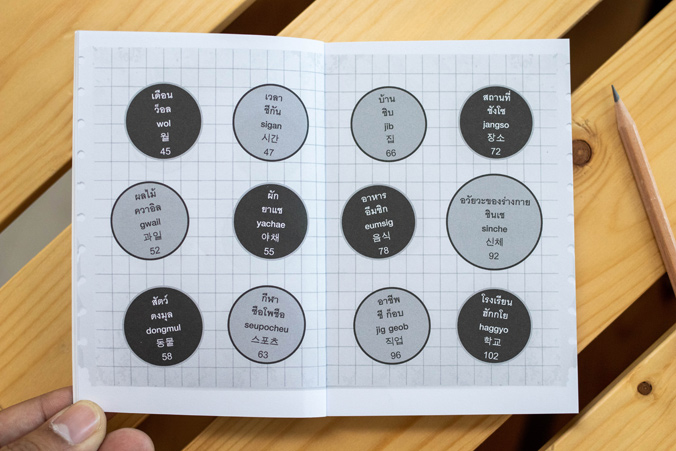 เดือน
ว็อล
wol
월
45
เวลา
ชีกัน
sigan
시간
47
ผลไม้
ควาอิล
gwail
과일
52
ผัก
ยาแช
yachae
야채
55
สัตว์
ดงมุล
dongmul
동물
58
กีฬา
ซือโพชือ
seupocheu
스포츠
63
บ้าน
ชิบ
jib
집
66
สถานที่
ชังโซ
jangso
장소
72
อาหาร
อึมชิก
eumsig
음식
78
อวัยวะของร่างกาย
ชินเช
sinche
신체
92
อาชีพ
ชี ก็อบ
jig geob
직업
96
โรงเรียน
ฮักกโย
haggyo
학교
102